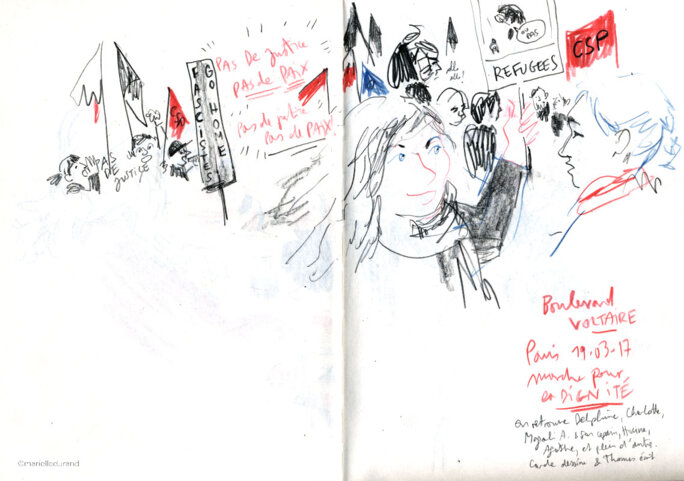 FASCISTES
GO HOME
PAS De Justice
PAS de PAIX
Pas de justice
Pas de PAIX
PAS
DE
justice
CSP
PAS
REFUGEES
CSP
Boulevard
VOLTAIRE
Paris 19.03.17
marche pour
la DIGNITÉ
on retrouve Delphine, Charlotte,
Magali A. & son copain,
Agathe, et plein d'autres.
dessine & Thomas écrit